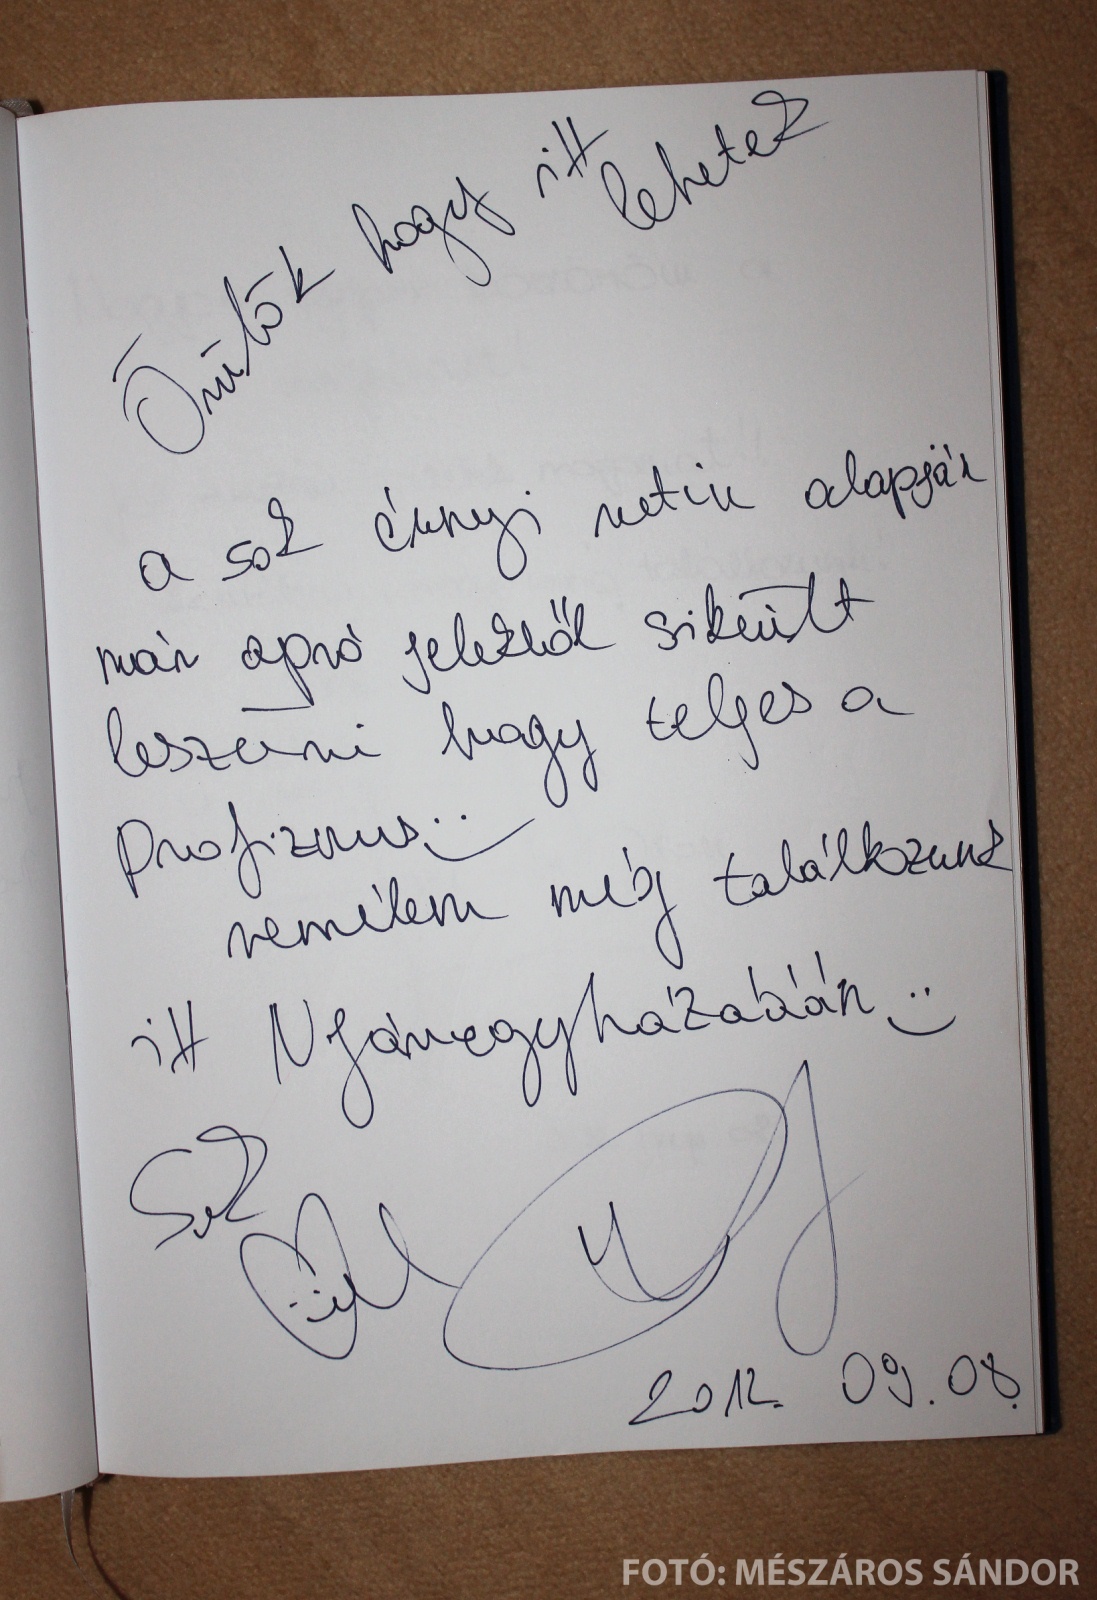 Örülök hogy itt lehetek
a sok évnyi rutin alapján
már apró jelekből sikerült
leszűrni hogy teljes a
Profizmus
remélem még találkozunk
itt Nyáregyházában
Sok
2012. 09. 08.
FOTÓ: MÉSZÁROS SÁNDOR